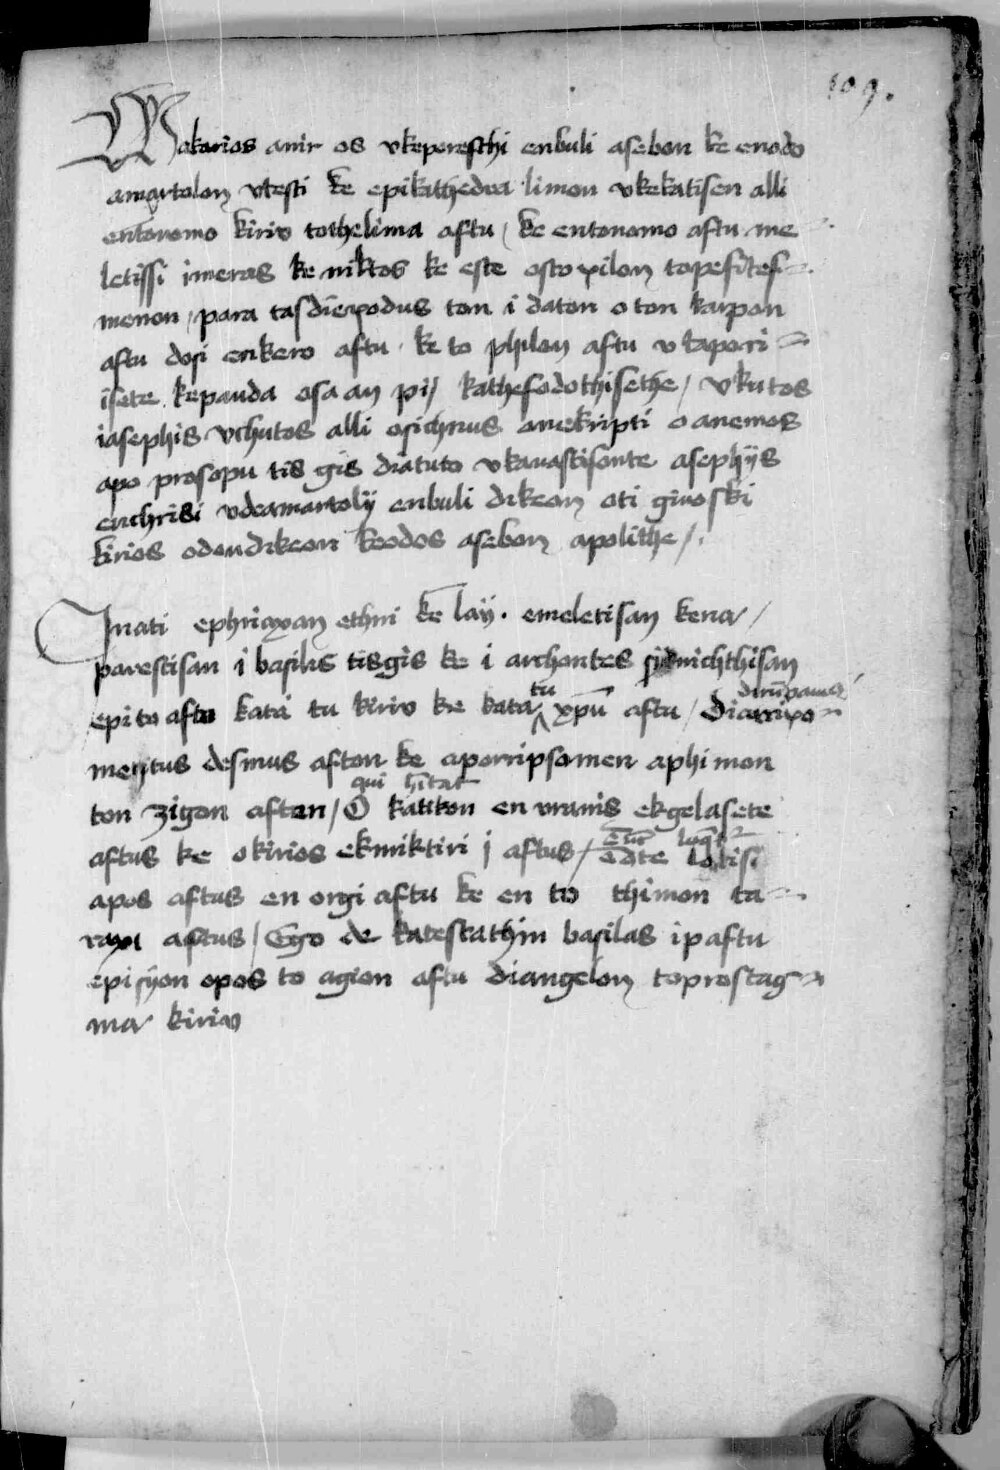 109.
Makarios anir os vkeporefthi enbuli asebon ke enodo
amartolon vtesti ke epikathedra limon vkekatisen alli
entonomo kiriv tothelima aftu / ke entonomo aftu me
letissi imeras ke niktos ke este osto xilon topefitef=
menon / para tasdiexodus ton i daton o ton karpon
aftu dosi enkero aftu . ke to philon aftu v kapori=
isete kepanda osa an pij kathefodothisethe / vkutos
iasephis vchutos alli osichnus anekripti o anemos
apo prosopu tis gis diatuto vkanastisonte asephijs
enchrisi vdeamartolij enbuli dikeon oti ginoski
kirios odondikeon keodos asebon apolithe / .
Inati ephriaxan ethni ke laij . emeletisan kena /
parestisan i basilis tisgis ke i archontes sinichthisan
epi to afto kata tu kiriv ke kata tu xpu aftu / Diarrixo= dirumpamus
mentus desmus afton ke aporripsomen aphimon
ton zigon afton / O katikon en vranis ekgelasete
qui hitat
aftus ke okirios ekmiktiri j aftus / edte lalisi
tunc loqt
apos aftus en orgi aftu ke en to thimon ta=
raxi aftus / Ego de katestathin basilas ipaftu
epi syon opos to agion aftu diangelon toprostag=
ma kiriv